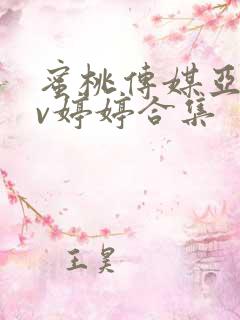 蜜桃传媒亚
v婷婷合集
王昊